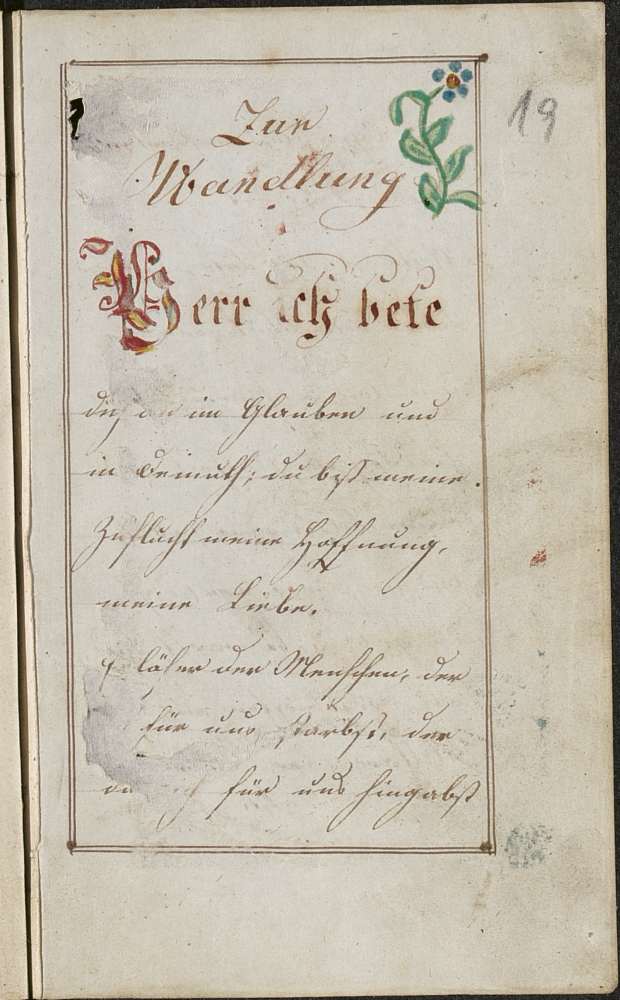 19
Zur
Wandlung
Herr ich bete
dich an im Glauben und
in Demuth; du bist meine
Zuflucht meine Hoffnung,
meine Liebe.
löser der Menschen, der
für uns starbst, der
für uns hingabst